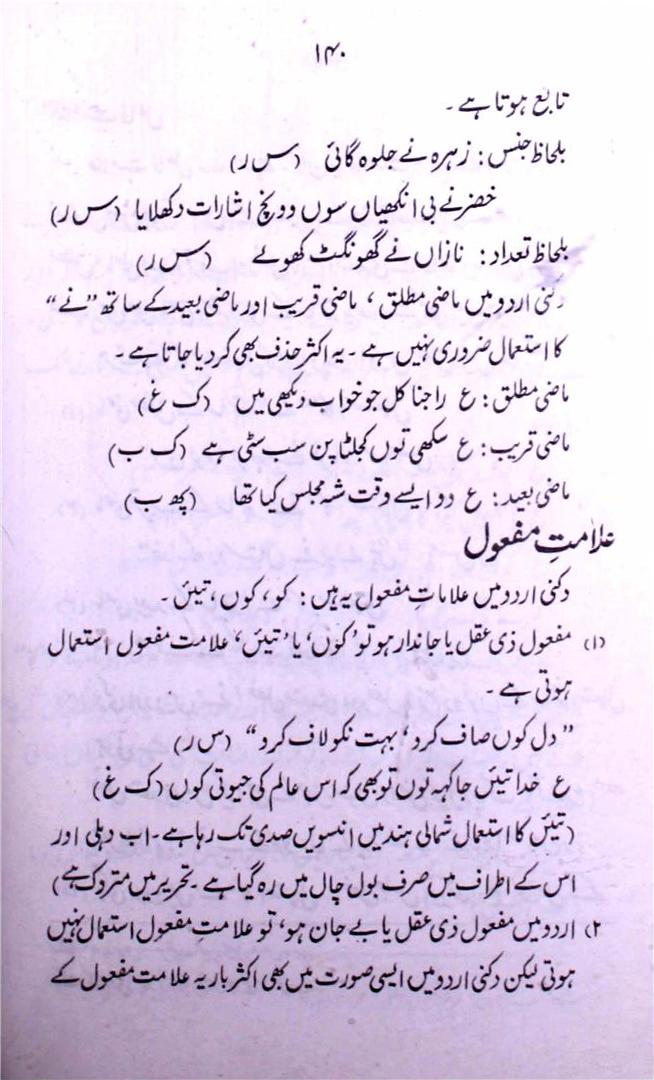 ۱۴۰
تابع ہوتا ہے ۔
بلحاظ جنس : زہرہ نے جلوہ گائی (س ر)
خضر نے بی انکھیاں سوں دونچ اشارات دکھلایا (س ر)
بلحاظ تعداد : نازاں نے گھونگٹ کھولے (س ر)
دکنی اردو میں ماضی مطلق ، ماضی قریب اور ماضی بعید کے ساتھ ”نے“
کا استعمال ضروری نہیں ہے ۔ یہ اکثر حذف بھی کر دیا جاتا ہے ۔
ماضی مطلق : ع راجنا کل جو خواب دیکھی میں (ک غ)
ماضی قریب : ع سکھی توں کجلٹا پن سب سٹی ہے (ک ب)
ماضی بعید : ع دو ایسے وقت شہ مجلس کیا تھا (پھ ب)
علامتِ مفعول
دکنی اردو میں علاماتِ مفعول یہ ہیں : کو ، کوں ، تیئں ۔
(۱) مفعول ذی عقل یا جاندار ہو تو ’کوں‘ یا ’تیئں‘ علامت مفعول استعمال
ہوتی ہے ۔
”دل کوں صاف کرو ، بہت نکو لاف کرو“ (س ر)
ع خدا تیئں جا کہہ توں تو بھی کہ اس عالم کی جیوتی کوں (ک غ)
(تیئں کا استعمال شمالی ہند میں انیسویں صدی تک رہا ہے ۔ اب دہلی اور
اس کے اطراف میں صرف بول چال میں رہ گیا ہے ۔ تحریر میں متروک ہے)
۲) اردو میں مفعول ذی عقل یا بے جان ہو ، تو علامتِ مفعول استعمال نہیں
ہوتی لیکن دکنی اردو میں ایسی صورت میں بھی اکثر بار یہ علامت مفعول کے